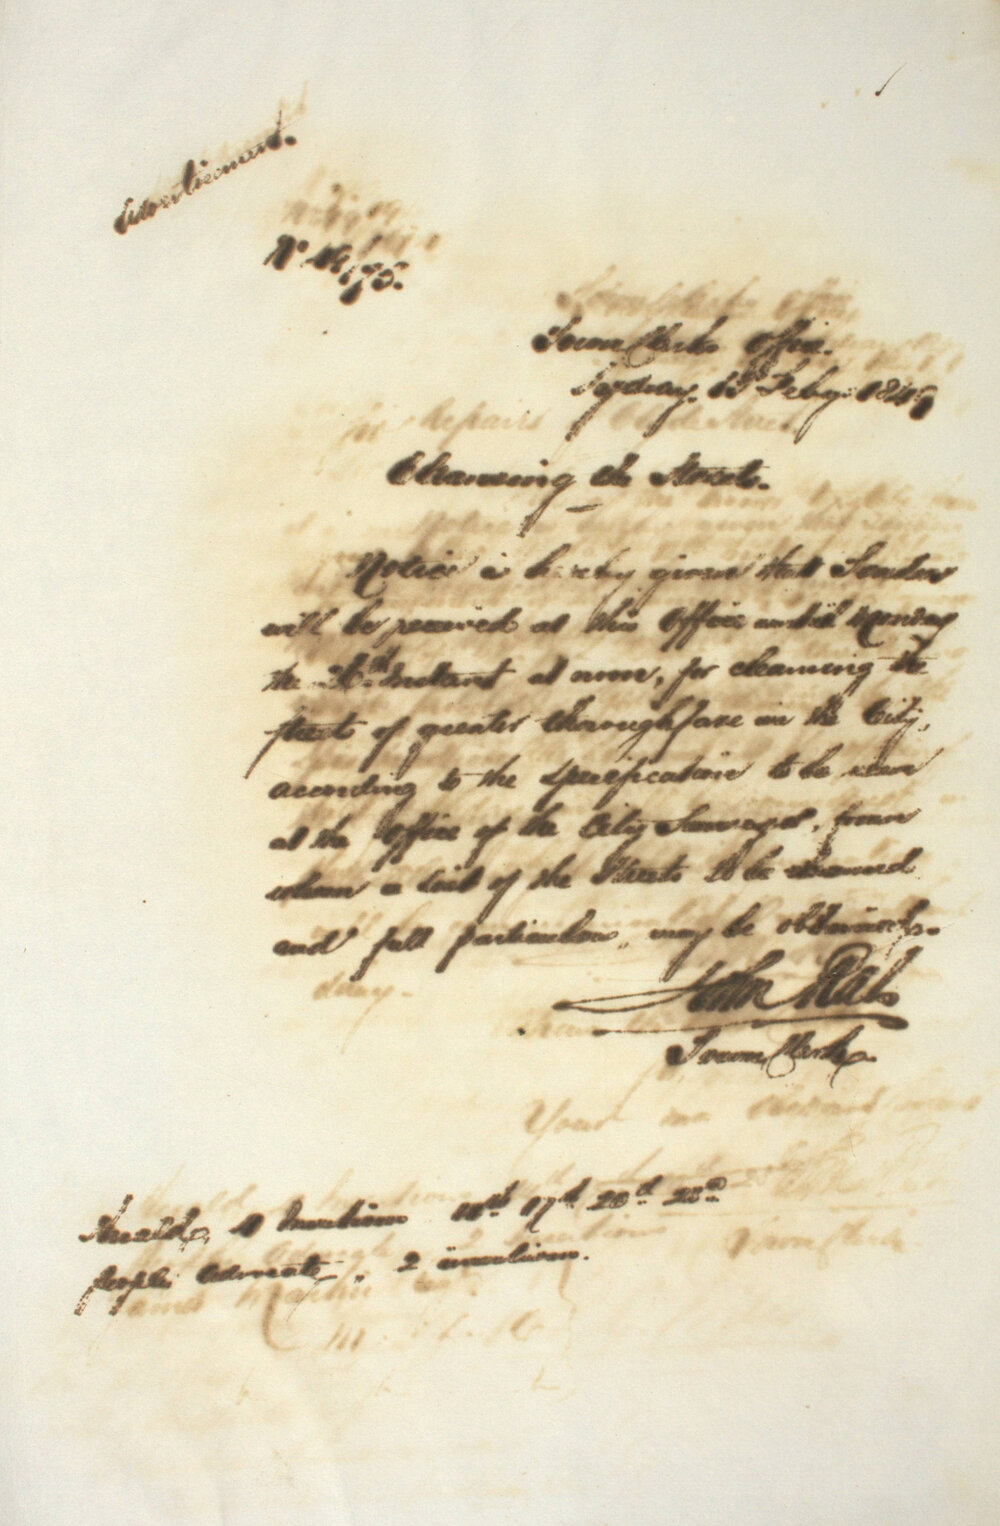 Advertisement.
No 49/75.
Town Clerks Office.
Sydney. 13 Feby. 1849
Cleansing the Streets.
Notice is hereby given that Tenders
will be received at this Office until Monday
the 26th Instant at noon, for cleansing the
streets of greater thoroughfare in the City,
according to the Specification to be seen
at the Office of the City Surveyor, from
whom a list of the Streets to be cleansed
and full particulars, may be obtained.
John Rae
Town Clerk
Herald, 4 Insertions 17th
Peoples Advocate, 2 insertions.